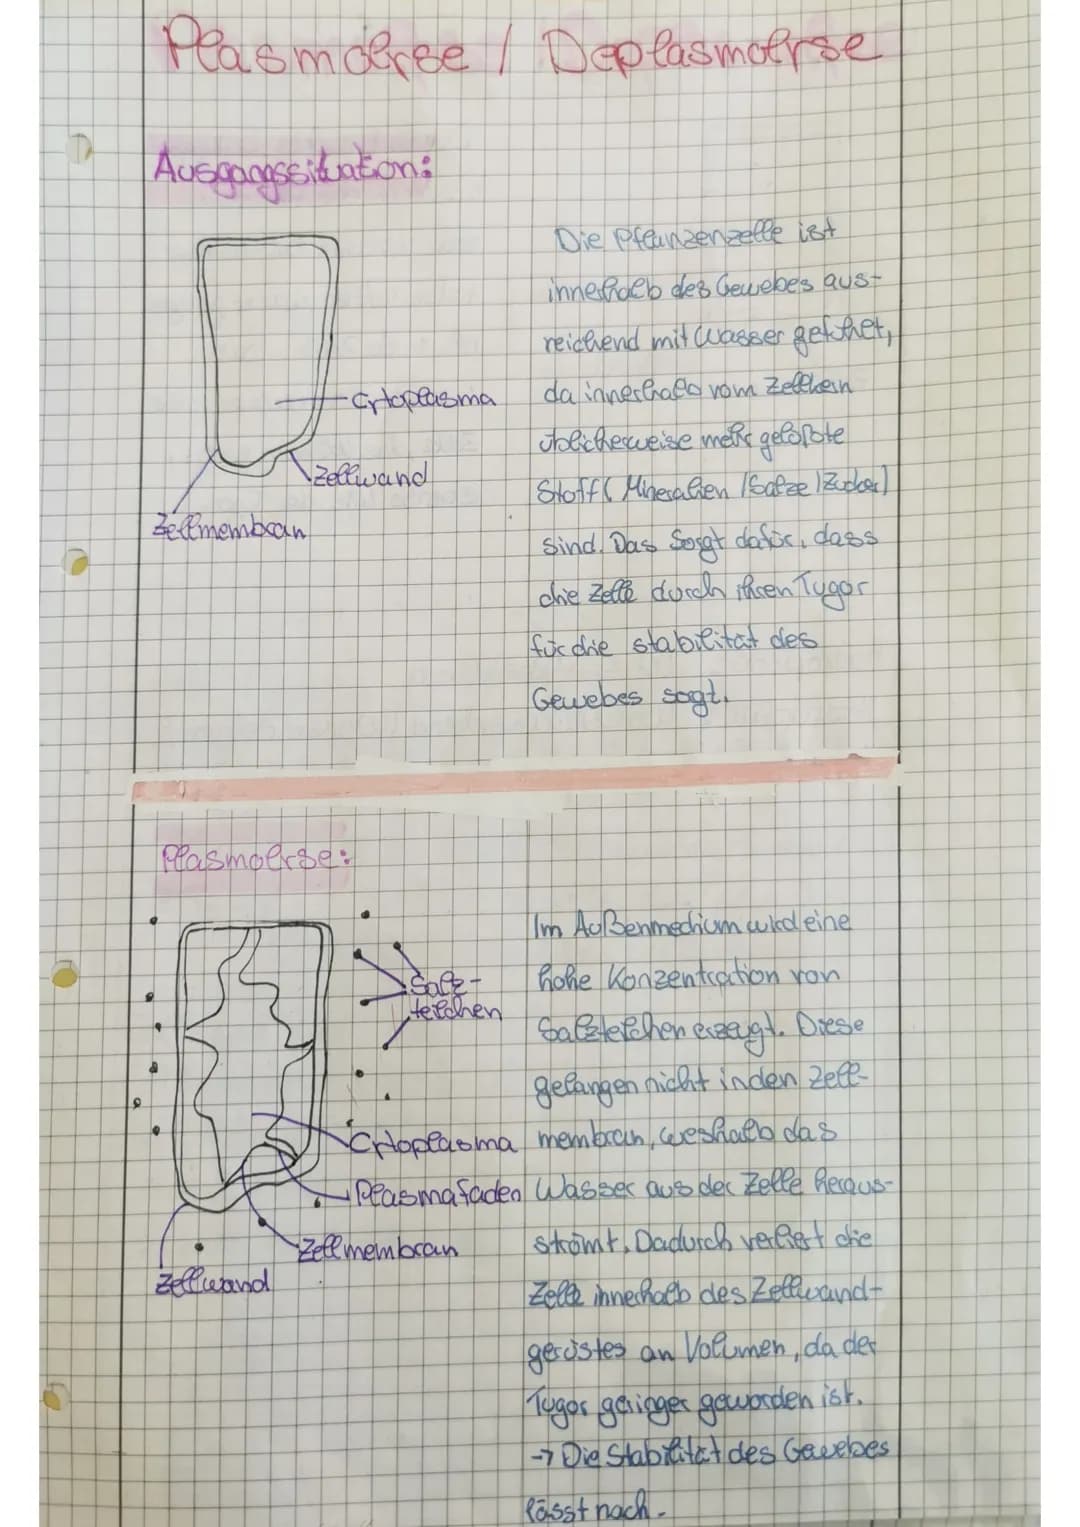 Plasmolyse / Deplasmolyse
Ausgangssituation:
Die Pflanzenzelle ist
innerhalb des Gewebes aus-
reichend mit Wasser
da innerhalb vom Zellkern
üblicherweise mehr gelöste
Stoff( Mineralien /Salze /Zucker)
sind. Das Sorgt dafür, dass
die Zelle durch ihren Tugor
für die stabilität des
Gewebes sogt.
Cytoplasma
Zellwand
Zellmembran
Plasmolyse:
Salz-
teilchen
Cytoplasma
Plasmafäden
Zellmembran
Zellwand
Im Außenmedium wird eine
hohe Konzentration von
Salzteilchen erzeugt. Diese
gelangen nicht in den Zell-
membran, weshalb das
Wasser aus der Zelle heraus-
strömt. Dadurch verliert die
Zelle innerhalb des Zellwand-
gerüstes an Volumen, da der
Tugor geringer geworden ist.
→ Die Stabilität des Gewebes
lässt nach.